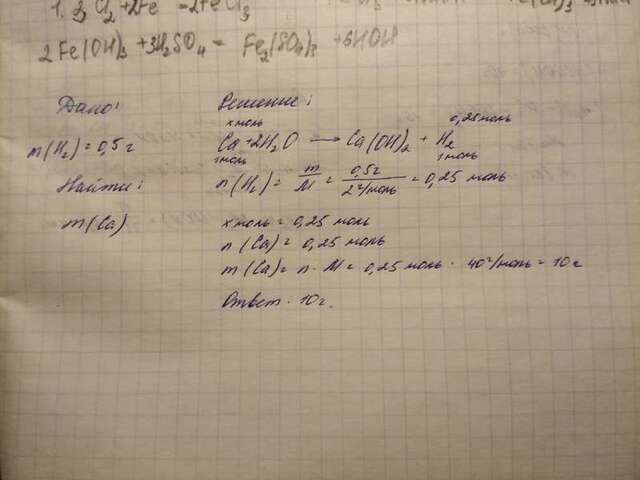 1. 3Cl2 + 2Fe = 2FeCl3
2Fe(OH)3 + 3H2SO4 = Fe2(SO4)3 + 6HOH
Дано:
m(H2) = 0,5 г
Найти:
m(Ca)
Решение:
x моль 0,25 моль
Ca + 2H2O → Ca(OH)2 + H2
1 моль 1 моль
n(H2) = m/M = 0,5 г / 2 г/моль = 0,25 моль
x моль = 0,25 моль
n(Ca) = 0,25 моль
m(Ca) = n · M = 0,25 моль · 40 г/моль = 10 г
Ответ: 10 г.